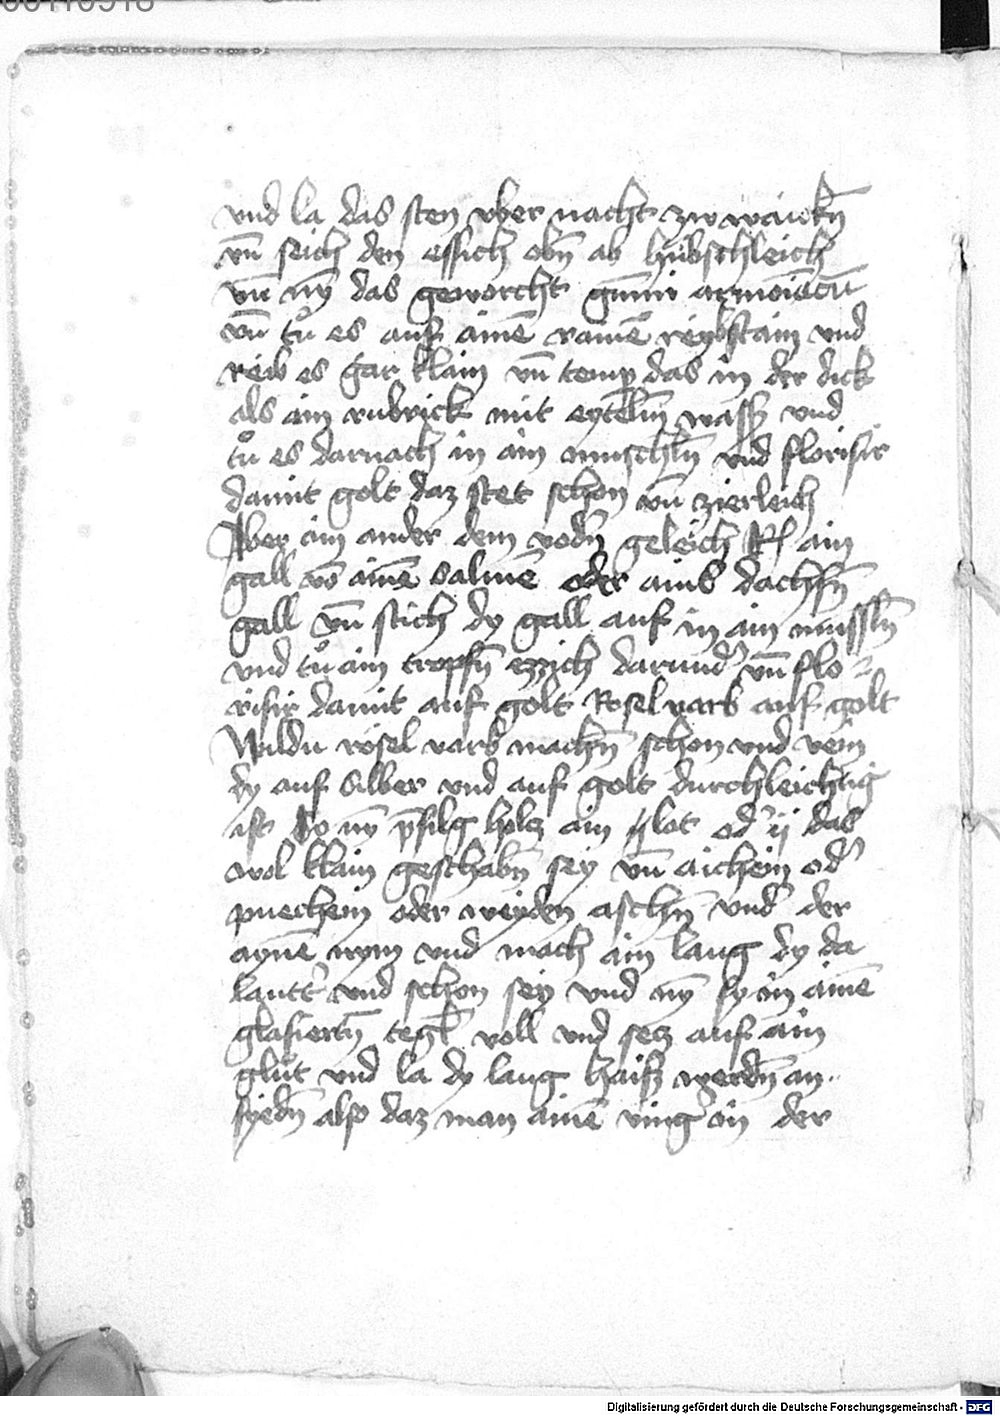 vnd la das sten vber nacht zw waickn̄
vn̄ seich den essich obn̄ ab hubschleich
vn̄ nȳ das geworcht gūmi armoiacū
vn̄ tů es auf ainē rainē reybstain vnd
reib es gar klain vn̄ temp das in der dick
als ain rubrick mit eytelm̄ wass vnd
tů es darnach in ain muschln̄ vnd florisir
damit golt daz stet schon vn̄ zierleich
Aber ain ander dem vodn̄ geleich Rx ain
gall vō ainē salmē oder ains dachsn̄
gall vn̄ stich dy gall auf in ain mussln̄
vnd tů ain tropfn̄ ezzich darund' vn̄ flo=
risir damit auf golt Rosel varb auf golt
Wildu rösel varb machn̄ schon vnd vein
dy auf silber vnd auf golt durchleichtig
ist So nȳ p̄silg holcz ain lot od' ij das
wol klain geschabn̄ sey vn̄ aichein od'
puechein oder weyden aschn̄ vnd der
aynē nym vnd mach ain laug dy da
lautt' vnd schon sey vnd nȳ sy in ainē
glasiertn̄ tegl voll vnd secz auf ain
glut vnd la dy laug haiss werdn̄ an
syedn̄ also daz man ainē ving' in der
Digitalisierung gefördert durch die Deutsche Forschungsgemeinschaft - DFG